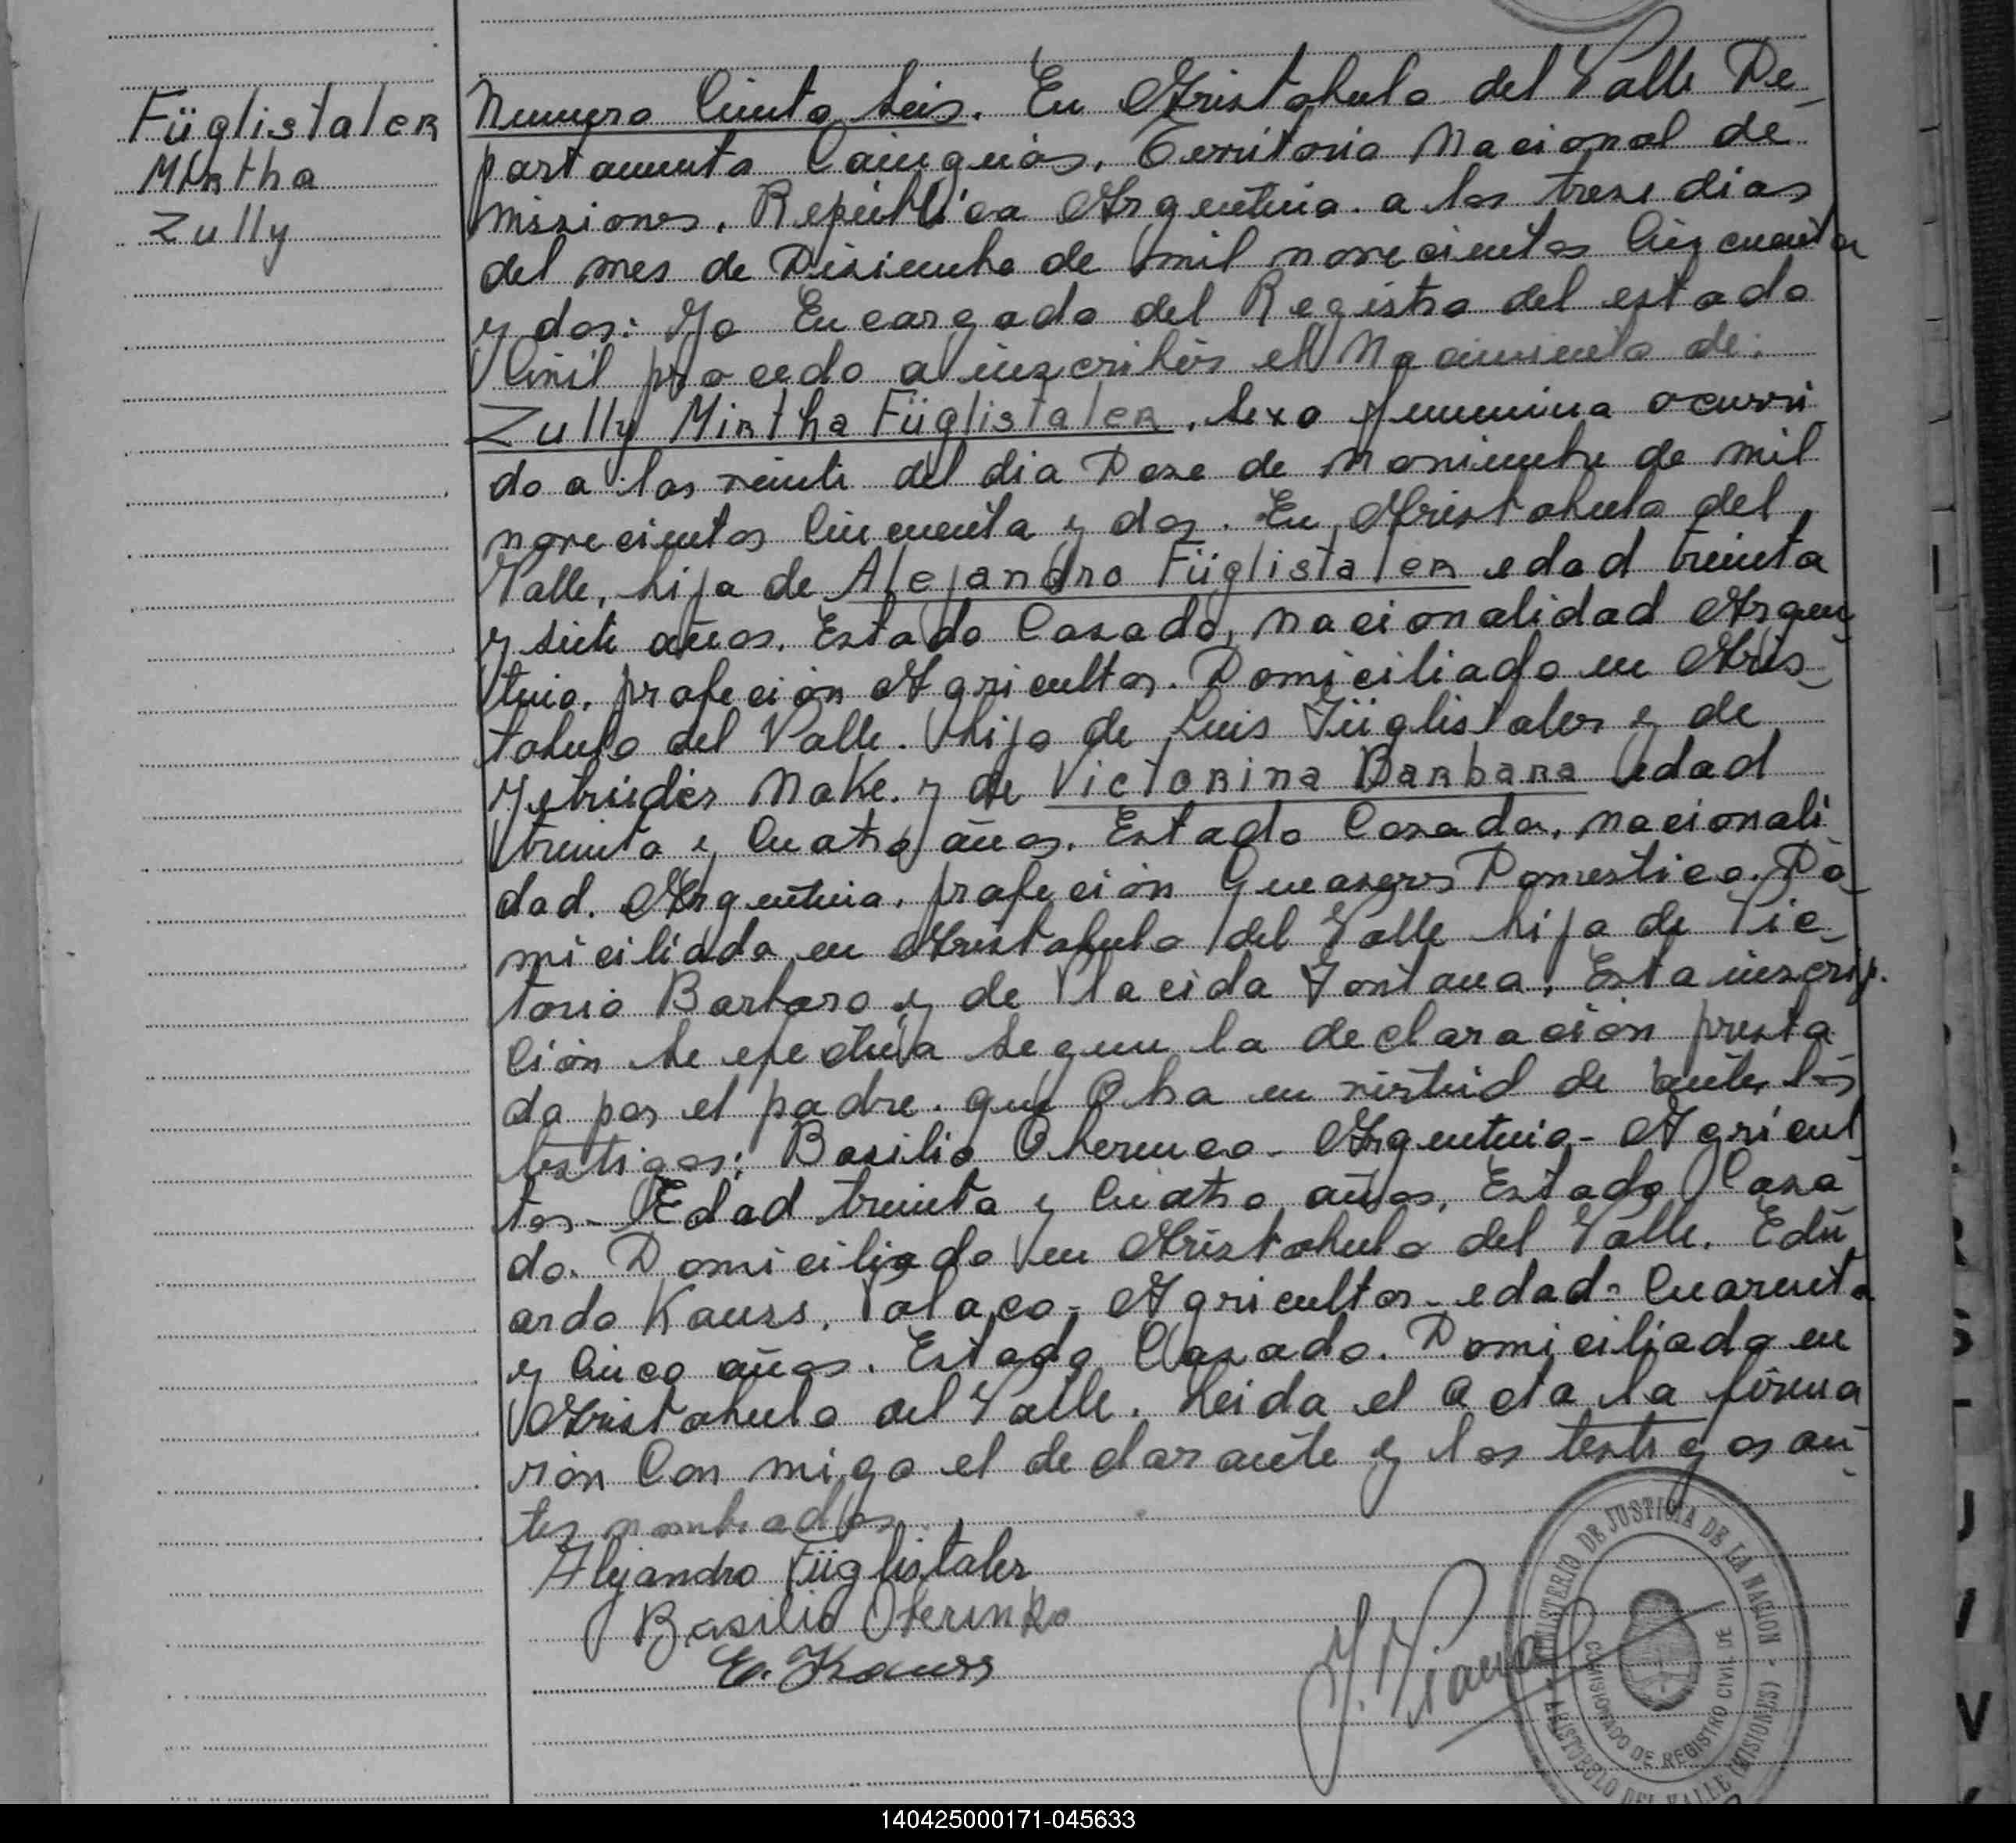 Füglistaler
Mirtha
Zully
Numero Ciento Seis. En Aristobulo del Valle De-
partamento Cainguás, Territorio Nacional de
Misiones, República Argentina. a los trese dias
del mes de Disiembre de mil novecientos Cincuenta
y dos: Yo Encargado del Registro del estado
Civil procedo a inscribir el Nacimiento de:
Zully Mirtha Füglistaler, sexo femenina ocurri
do a las veinte del dia Dose de Noviembre de mil
novecientos Cincuenta y dos. En Aristobulo del
Valle, hija de Alejandro Füglistaler edad treinta
y siete años. Estado Casado, nacionalidad Argen
tino, profeción Agricultor. Domiciliado en Aris-
tobulo del Valle. hijo de Luis Füglistaler y de
Make. y de Victorina Barbara edad
treinta y Cuatro años. Estado Casada, nacionali
dad. Argentina. profeción Domestica. Do-
miciliada en Aristobulo del Valle hija de Vic-
torio Barbaro y de Placida Fontana, Esta inscrip.
ción se efectúa segun la declaración presta
da por el padre. que Obra en virtud de ante los
testigos: Basilio Argentino - Agricul
tor - Edad treinta y Cuatro años, Estado Casa
do. Domiciliado en Aristobulo del Valle. Edu
ardo Kauss, Polaco - Agricultor - edad = Cuarenta
y Cinco años. Estado Casado. Domiciliado en
Aristobulo del Valle. Leida el Acta la firma
rón Con migo el declarante y los testigos an
tes nombrados
Alejandro Füglistaler
Basilio
E. Kauss
MINISTERIO DE JUSTICIA DE LA NACION - ARISTOBULO DEL VALLE (MISIONES)
COMISIONADO DE REGISTRO CIVIL DE
140425000171-045633